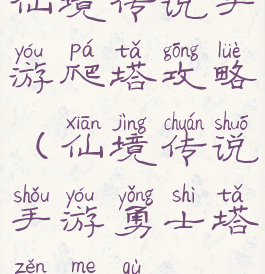 仙境传说手
yóu pá tǎ gōng lüè
游爬塔攻略
xiān jìng chuán shuō
(仙境传说
shǒu yóu yǒng shì tǎ
手游勇士塔
zěn me qù